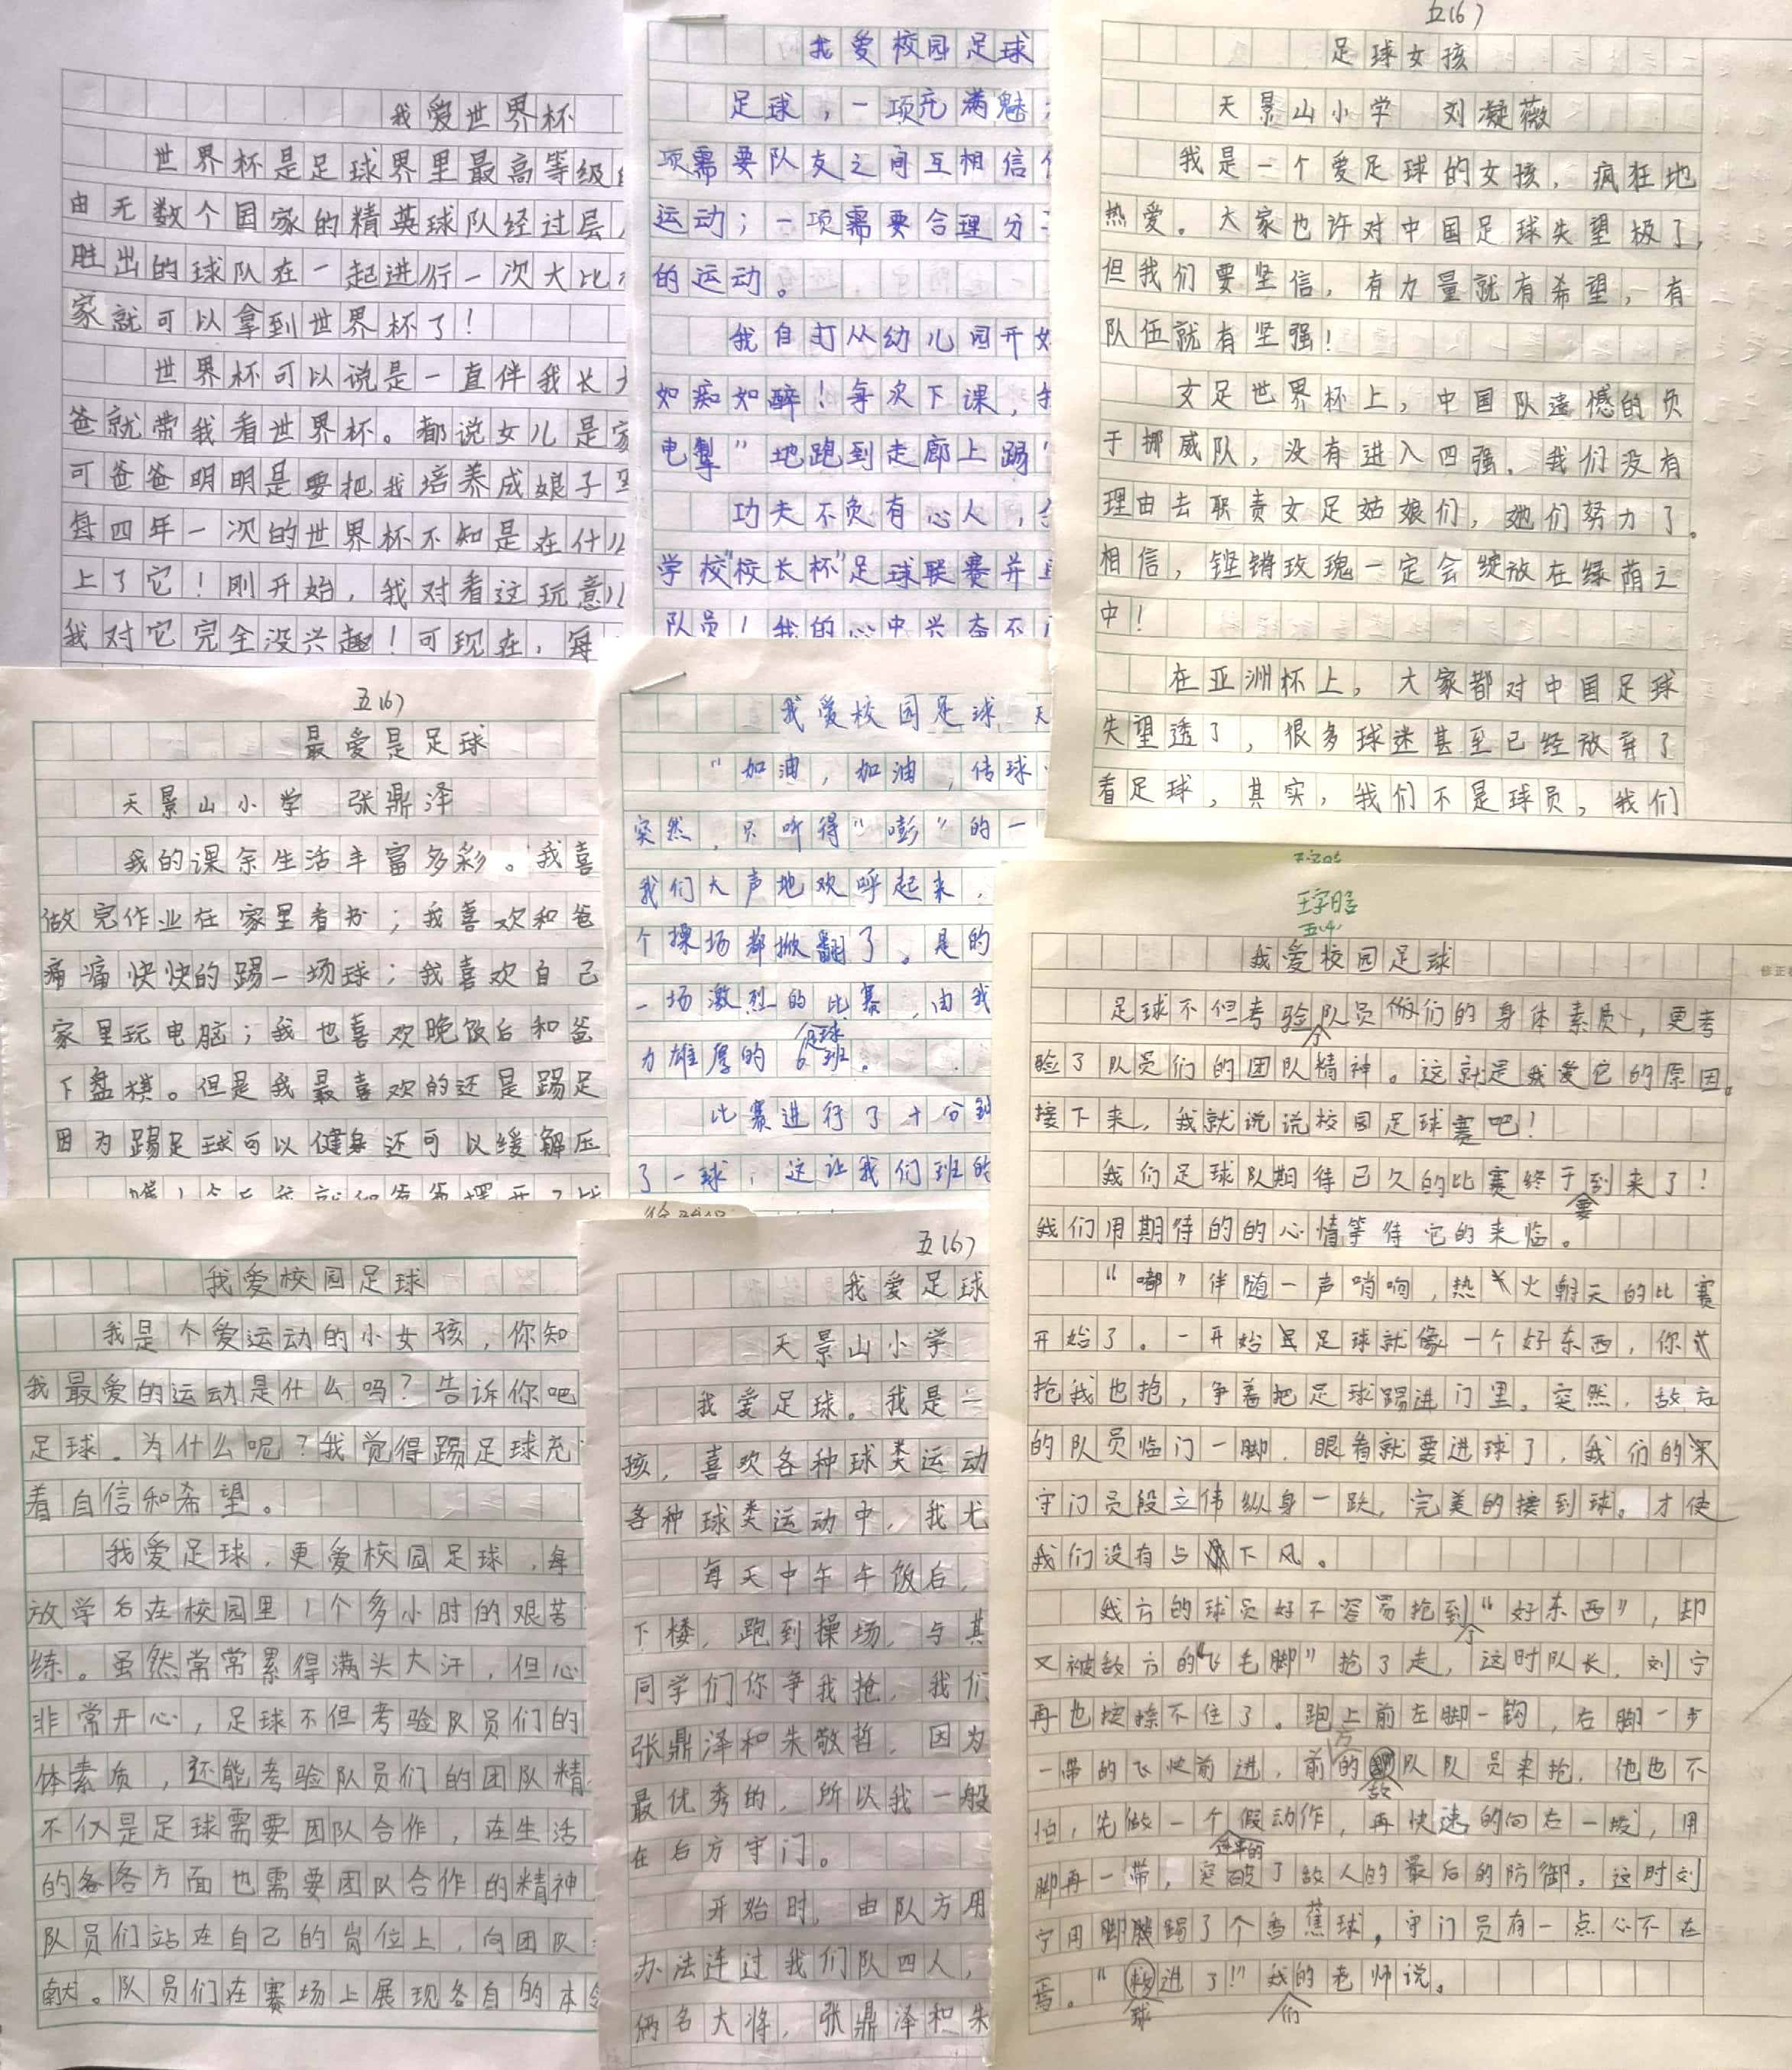 我爱世界杯
世界杯是足球界里最高等级
由无数个国家的精英球队经过层
胜出的球队在一起进行一次大比
家就可以拿到世界杯了!
世界杯可以说是一直伴我长
爸就带我看世界杯。都说女儿是
可爸爸明明是要把我培养成娘子
每四年一次的世界杯不知是在什
上了它!刚开始,我对看这玩意儿
我对它完全没兴趣!可现在,每
我爱校园足球
足球,一项充满魅
项需要队友之间互相信
运动;一项需要合理分
的运动。
我自打从幼儿园开
如痴如醉!每次下课,
电掣”地跑到走廊上踢
功夫不负有心人,
学校“校长杯”足球联赛并
队员!我的心中兴奋不
五(6)
足球女孩
天景山小学 刘凝薇
我是一个爱足球的女孩,疯狂地
热爱。大家也许对中国足球失望极了,
但我们要坚信,有力量就有希望,有
队伍就有坚强!
女足世界杯上,中国队遗憾的负
于挪威队,没有进入四强。我们没有
理由去职责女足姑娘们,她们努力了。
相信,铿锵玫瑰一定会绽放在绿荫之
中!
在亚洲杯上,大家都对中国足球
失望透了,很多球迷甚至已经放弃了
看足球,其实,我们不是球员,我们
五(6)
最爱是足球
天景山小学 张鼎泽
我的课余生活丰富多彩。我喜
做完作业在家里看书;我喜欢和爸
痛痛快快的踢一场球;我喜欢自己
家里玩电脑;我也喜欢晚饭后和爸
下盘棋。但是我最喜欢的还是踢足
因为踢足球可以健身还可以缓解压
我爱校园足球 天
“加油,加油,传球
突然,只听得“嘭”的一
我们大声地欢呼起来,
个操场都掀翻了。是的
一场激烈的比赛,由我
足球
力雄厚的6班。
比赛进行了十分
了一球,这让我们班的
王宇晗
五(4)
我爱校园足球
足球不但考验队员们的身体素质,更考
验了队员们的团队精神。这就是我爱它的原因。
接下来,我就说说校园足球赛吧!
我们足球队期待已久的比赛终于要到来了!
我们用期待的的心情等待它的来临。
“嘟”伴随一声哨响,热火朝天的比赛
开始了。一开始足球就像一个好东西,你
抢我也抢,争着把足球踢进门里。突然,故方
的队员临门一脚,眼看就要进球了,我们的
守门员段立伟纵身一跃,完美的接到球。才使
我们没有占下风。
我方的球员好不容易抢到个“好东西”,却
又被敌方的“飞毛脚”抢了走,这时队长,刘宁
再也按捺不住了。跑上前左脚一钩,右脚一步
一带的飞快前进,前方的敌队队员来抢,他也不
怕,先做一个假动作,再快速的向右一拨,用
脚再一带,突破了敌人的最后的防御。这时刘
宁用脚踢了个香蕉球,守门员有一点心不在
焉。“球进了!”我们的老师说。
我爱校园足球
我是个爱运动的小女孩,你知
我最爱的运动是什么吗?告诉你吧
足球。为什么呢?我觉得踢足球充
着自信和希望。
我爱足球,更爱校园足球,每
放学后在校园里1个多小时的艰苦
练。虽然常常累得满头大汗,但心
非常开心,足球不但考验队员们的
体素质,还能考验队员们的团队精
不仅是足球需要团队合作,在生活
的各各方面也需要团队合作的精神
队员们站在自己的岗位上,向团队
献。队员们在赛场上展现各自的本
五(6)
我爱足球
天景山小学
我爱足球。我是一
孩,喜欢各种球类运动
各种球类运动中,我尤
每天中午午饭后,
下楼,跑到操场,与其
同学们你争我抢,我们
张鼎泽和朱敬哲,因为
最优秀的,所以我一般
在后方守门。
开始时,由队方用
办法连过我们队四人,
俩名大将,张鼎泽和朱